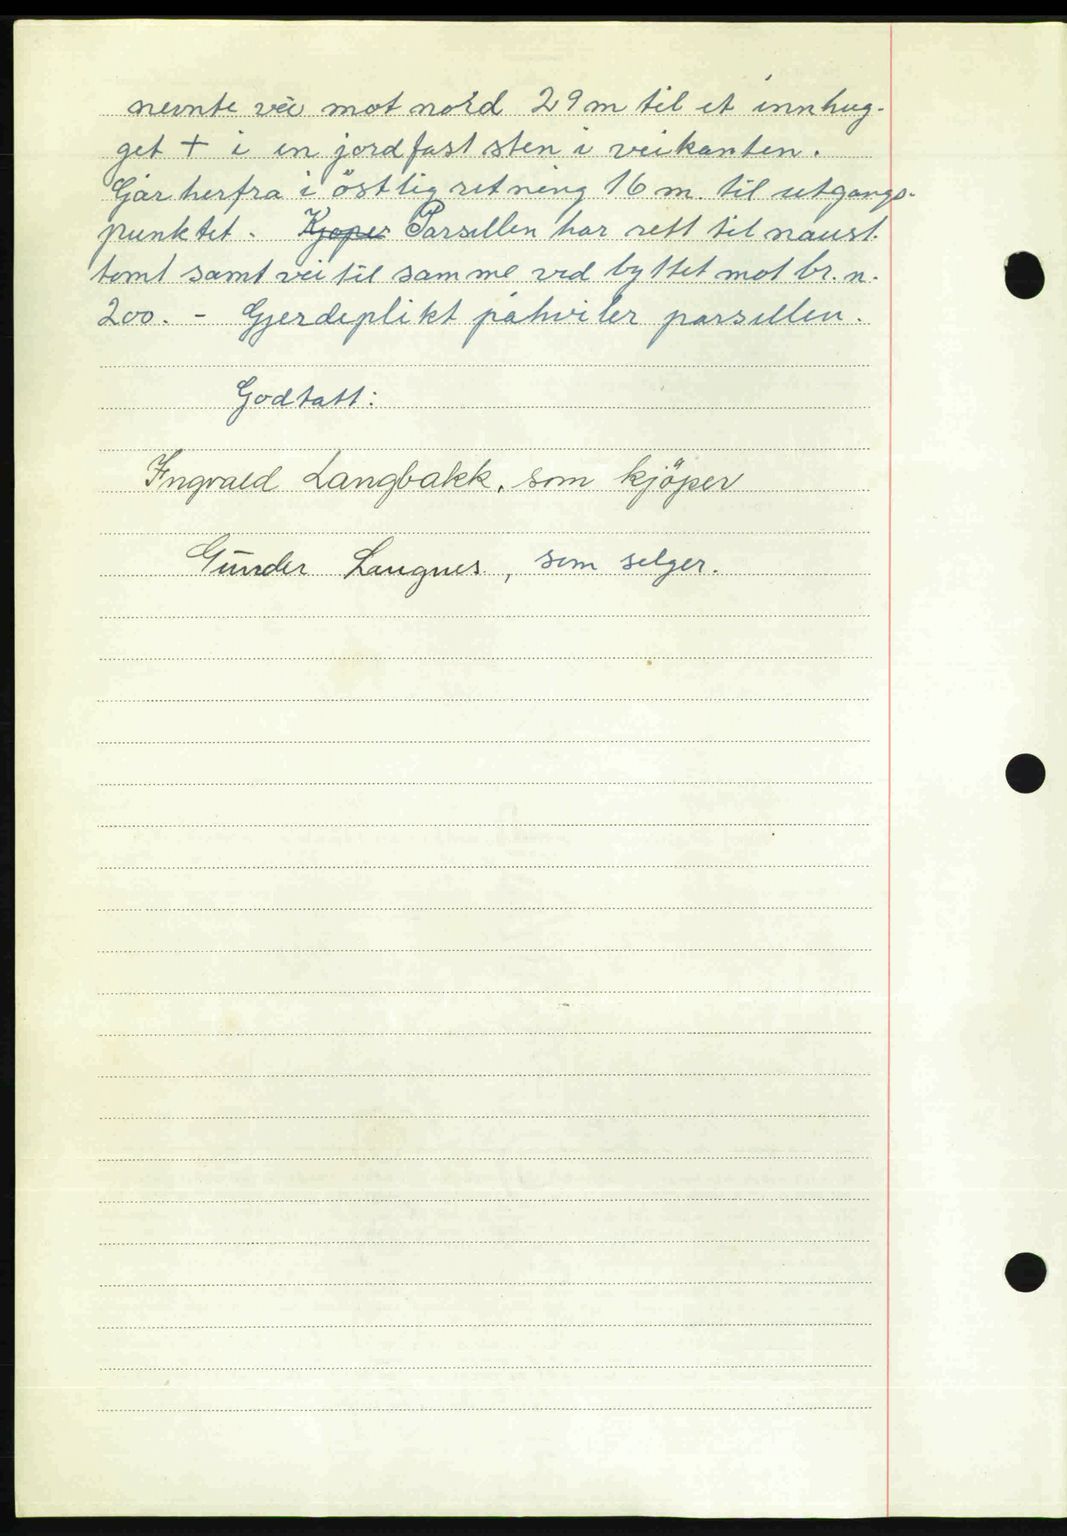 nevnte vei mot nord 29 m til et innhug-
get + i en jordfast sten i veikanten.
Går herfra i östlig retning 16 m. til utgangs-
punktet. Kjøper Parsellen har rett til naust
tomt samt vei til samme ved byttet mot br. n.
200. - Gjerdeplikt påhviler parsellen.
Godtatt:
Ingvald Langbakk, som kjöper
Gunder Laugnes, som selger.